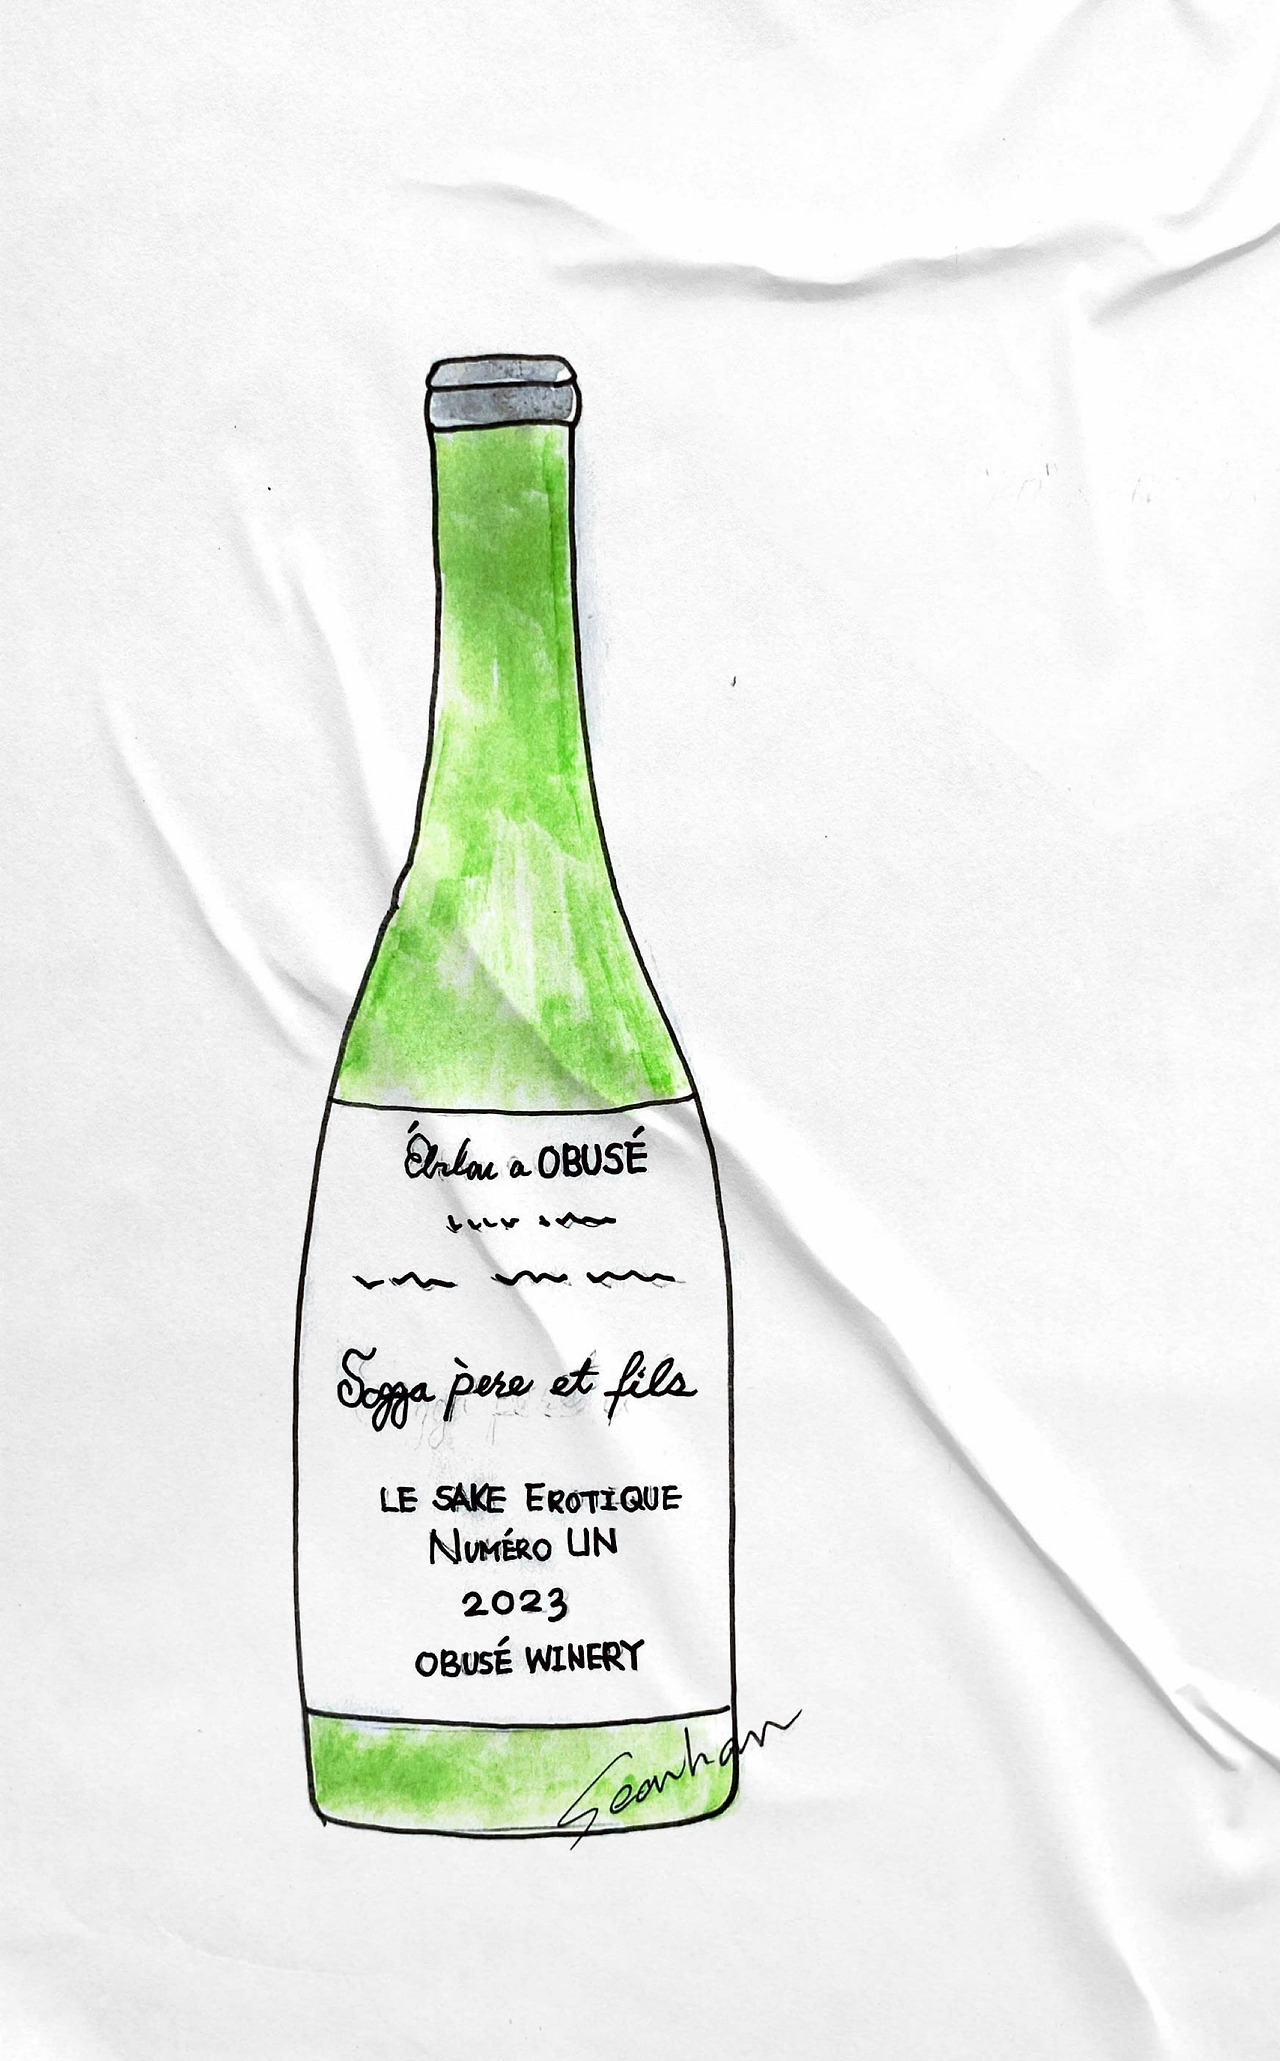 a OBUSÉ
Sogga père et fils
LE SAKE EROTIQUE
NUMÉRO UN
2023
OBUSÉ WINERY
Seanhan